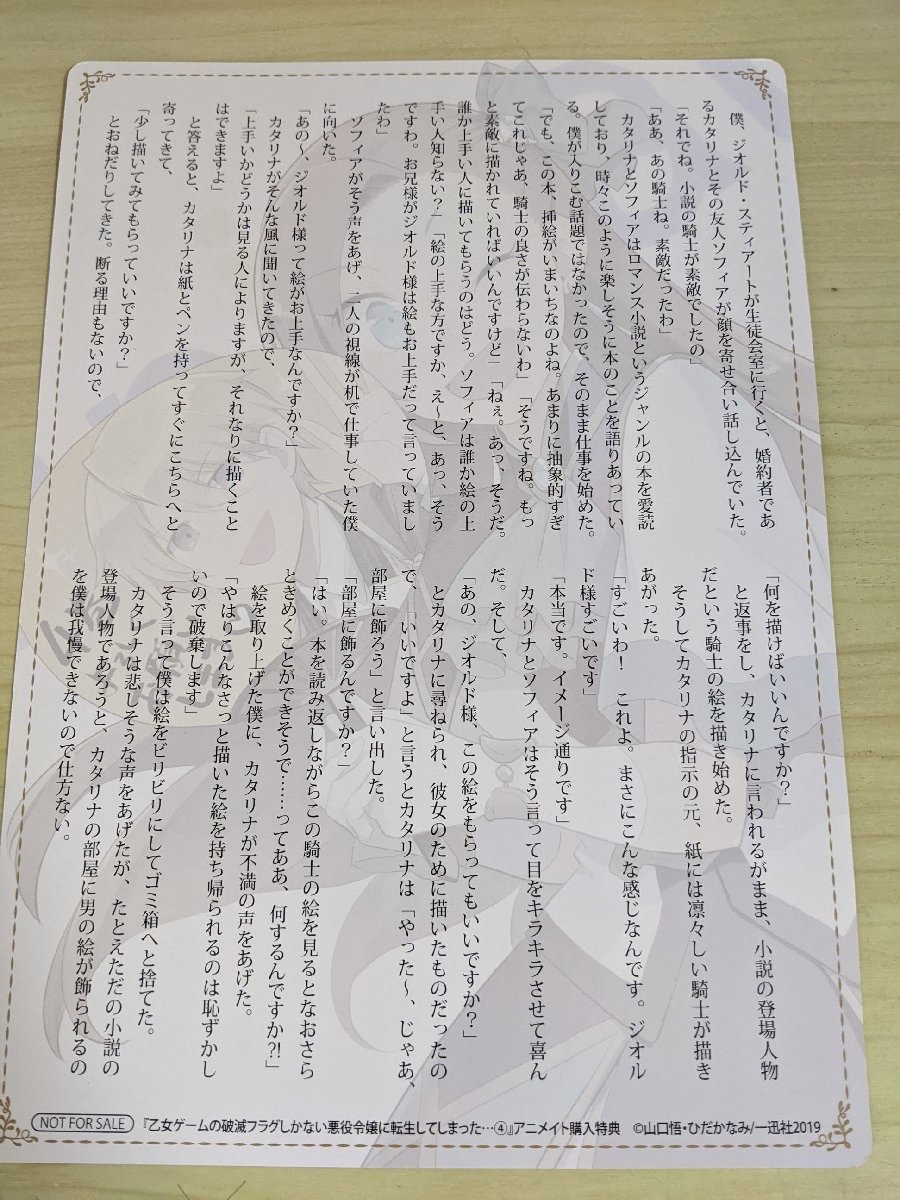 僕、ジオルド・スティアートが生徒会室に行くと、婚約者であ
るカタリナとその友人ソフィアが顔を寄せ合い話し込んでいた。
「それでね。小説の騎士が素敵でしたの」
「ああ、あの騎士ね。素敵だったわ」
カタリナとソフィアはロマンス小説というジャンルの本を愛読
しており、時々このように楽しそうに本のことを語りあってい
る。僕が入りこむ話題ではなかったので、そのまま仕事を始めた。
「でも、この本、挿絵がいまいちなのよね。あまりに抽象的すぎ
てこれじゃあ、騎士の良さが伝わらないわ」「そうですね。もっ
と素敵に描かれていればいいんですけど」「ねぇ。あっ、そうだ。
誰か上手い人に描いてもらうのはどう。ソフィアは誰か絵の上
手い人知らない？」「絵の上手な方ですか、え～と、あっ、そう
ですわ。お兄様がジオルド様は絵もお上手だって言っていまし
たわ」
ソフィアがそう声をあげ、二人の視線が机で仕事していた僕
に向いた。
「あの～、ジオルド様って絵がお上手なんですか？」
カタリナがそんな風に聞いてきたので、
「上手いかどうかは見る人によりますが、それなりに描くこと
はできますよ」
と答えると、カタリナは紙とペンを持ってすぐにこちらへと
寄ってきて、
「少し描いてみてもらっていいですか？」
とおねだりしてきた。断る理由もないので、
「何を描けばいいんですか？」
と返事をし、カタリナに言われるがまま、小説の登場人物
だという騎士の絵を描き始めた。
そうしてカタリナの指示の元、紙には凛々しい騎士が描き
あがった。
「すごいわ！　これよ。まさにこんな感じなんです。ジオル
ド様すごいです」
「本当です。イメージ通りです」
カタリナとソフィアはそう言って目をキラキラさせて喜ん
だ。そして、
「あの、ジオルド様、この絵をもらってもいいですか？」
とカタリナに尋ねられ、彼女のために描いたものだったの
で、「いいですよ」と言うとカタリナは「やった～、じゃあ、
部屋に飾ろう」と言い出した。
「部屋に飾るんですか？」
「はい。本を読み返しながらこの騎士の絵を見るとなおさら
ときめくことができそうで……ってああ、何するんですか?!」
絵を取り上げた僕に、カタリナが不満の声をあげた。
「やはりこんなさっと描いた絵を持ち帰られるのは恥ずかし
いので破棄します」
そう言って僕は絵をビリビリにしてゴミ箱へと捨てた。
カタリナは悲しそうな声をあげたが、たとえただの小説の
登場人物であろうと、カタリナの部屋に男の絵が飾られるの
を僕は我慢できないので仕方ない。
NOT FOR SALE 『乙女ゲームの破滅フラグしかない悪役令嬢に転生してしまった…④』アニメイト購入特典 ©山口悟・ひだかなみ/一迅社2019